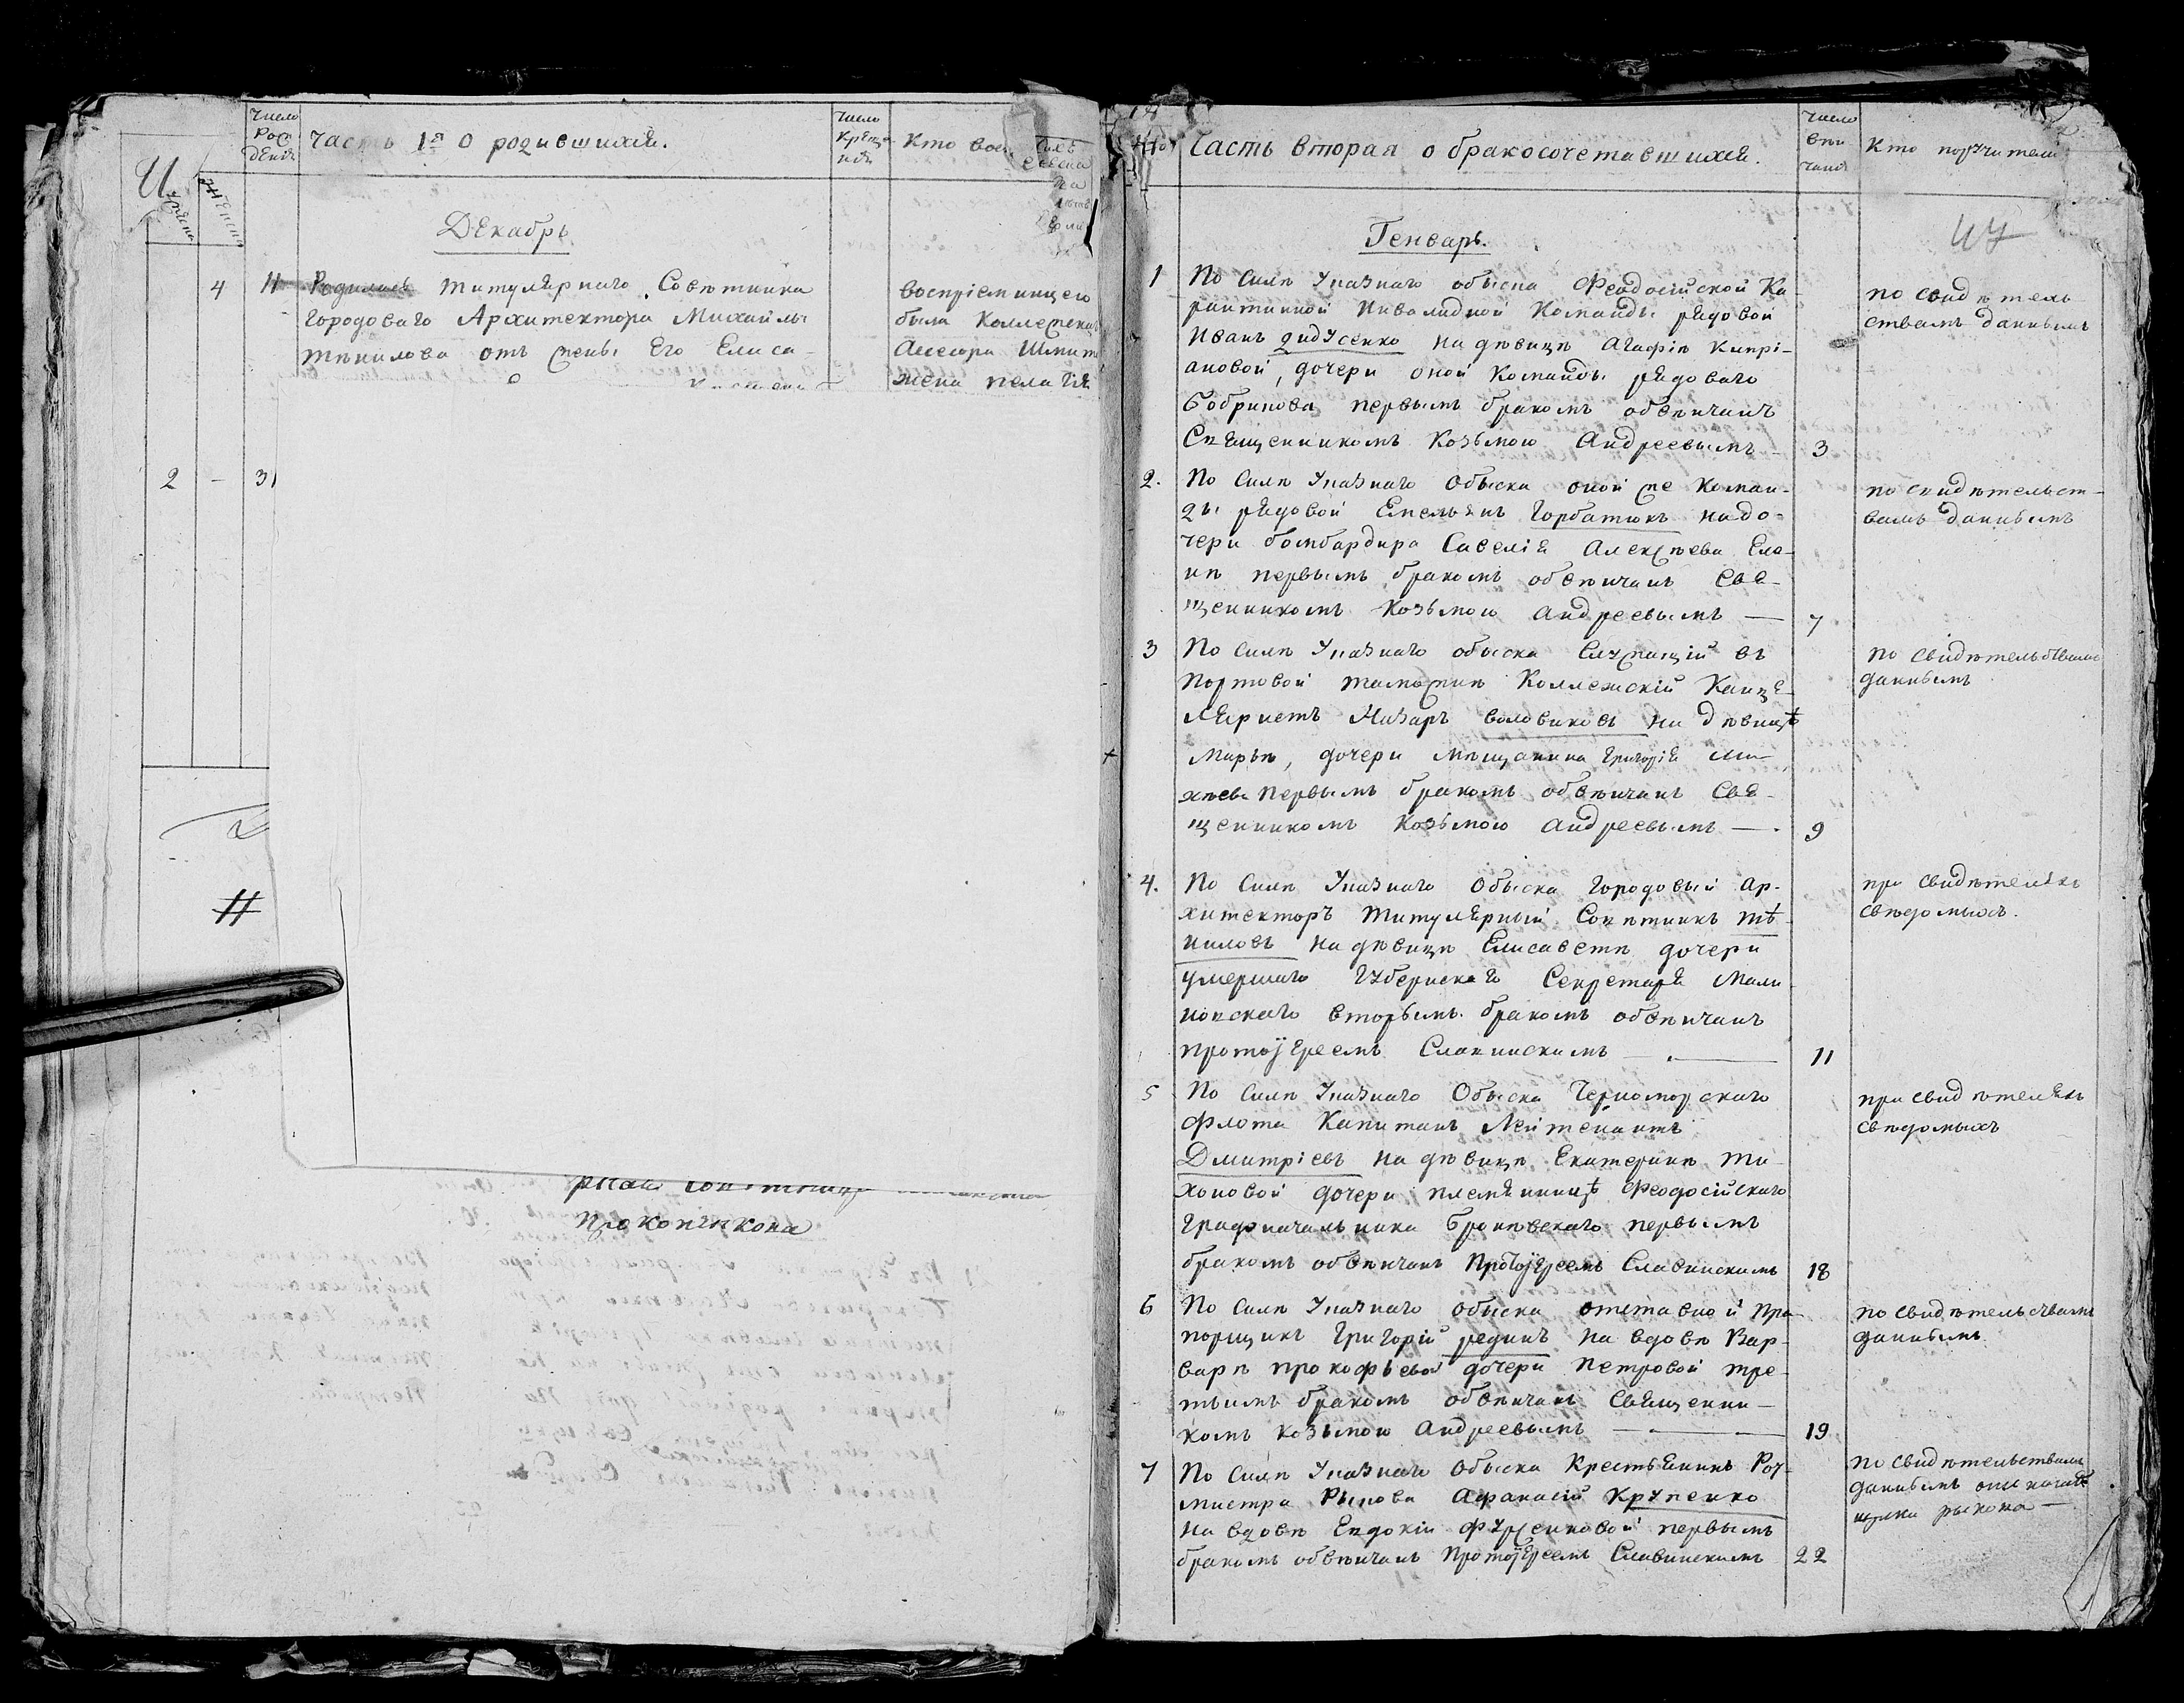 Число рождения
Часть 1я о родившихся.
Число крещения
Кто вос
Декабрь
4 11 Родилась титулярнаго Совѣтника
Городоваго Архитектора Михайлы
тѣнилова отъ жены Его Елиса-
восприемницею
была Коллежскаго
Асессора
жена пелагия
2 - 31
прокопенкова
Часть вторая о бракосочетавшихся.
Число вѣнчания
Кто поручители
Генварь.
1 По Силѣ Указнаго обыска Феодосійской Ка-
рантинной Инвалидной Команды рядовой
Иванъ дидусенко на дѣвицѣ Агафіи Кипрі-
ановой, дочери оной Команды рядоваго
Бобрикова первымъ бракомъ обвѣнчанъ
Священникомъ Козьмою Андреевымъ 3
по свидѣтель-
ствамъ даннымъ
2. По Силѣ Указнаго Обыска оной же Коман-
ды рядовой Емельянъ Горбатюкъ на до-
чери бомбардира Савелія Алексѣева Еле-
нѣ первымъ бракомъ обвѣнчанъ Свя-
щенникомъ Козьмою Андреевымъ — 7
по свидѣтельст-
вамъ даннымъ
3 По Силѣ Указнаго обыска Служащій въ
Портовой таможнѣ Коллежскій Канце-
ляристъ Назаръ воловиковъ на дѣвицѣ
Марьѣ, дочери мѣщанина Григорія Ми-
хѣева первымъ бракомъ обвѣнчанъ Свя-
щенникомъ Козьмою Андреевымъ — 9
по свидѣтельствамъ
даннымъ
4. По Силѣ Указнаго Обыска Городовый ар-
хитекторъ титулярный Совѣтникъ тѣ-
ниловъ на дѣвицѣ Елисаветѣ дочери
умершаго Губернскаго Секретаря Мали-
новскаго вторымъ бракомъ обвѣнчанъ
протоіереемъ Славинскимъ — 11
при свидѣтеляхъ
свѣдомыхъ.
5 По Силѣ Указнаго Обыска Черноморскаго
флота Капитанъ Лейтенантъ
Дмитріевъ на дѣвицѣ Екатеринѣ ти-
хоновой дочери племянницѣ Феодосійскаго
Градначальника Броневскаго первымъ
бракомъ обвѣнчанъ Протоіереемъ Славинскимъ 18
при свидѣтеляхъ
свѣдомыхъ
6 По Силѣ Указнаго обыска отставной пра-
порщикъ Григорій рединъ на вдовѣ Вар-
варѣ прокофьевой дочери Петровой тре-
тьимъ бракомъ обвѣнчанъ Священни-
комъ Козьмою Андреевымъ — 19
по свидѣтельствамъ
даннымъ
7 По Силѣ Указнаго Обыска Крестьянинъ Рот-
мистра Рыкова Афанасій Крупенко
на вдовѣ Евдокіи Фурсенковой первымъ
бракомъ обвѣнчанъ Протоіереемъ Славинскимъ 22
по свидѣтельствамъ
даннымъ
рыкова —